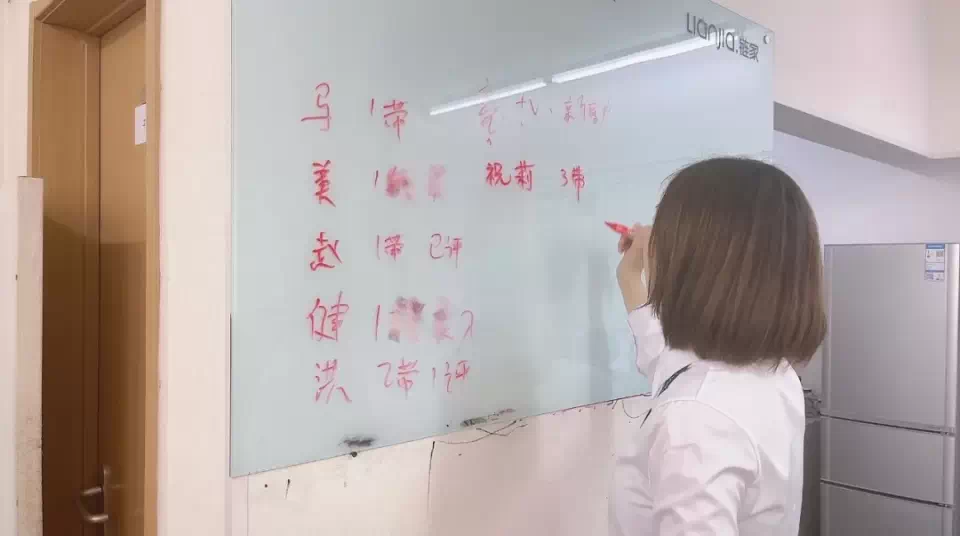 Lianjia.链家
马 1带
美 1 祝莉 3带
赵 1带 已评
健 1
洪 2带 1评